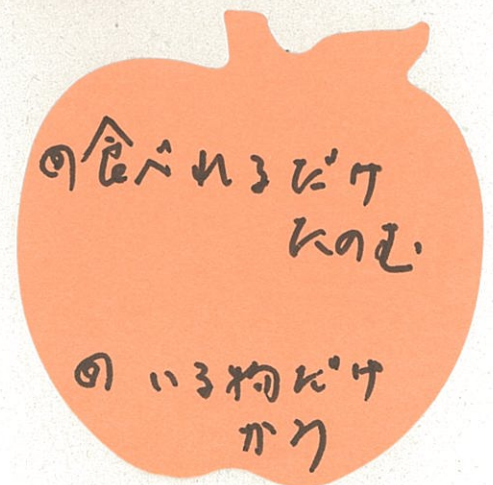 ◎食べれるだけ
たのむ
◎いる物だけ
かう